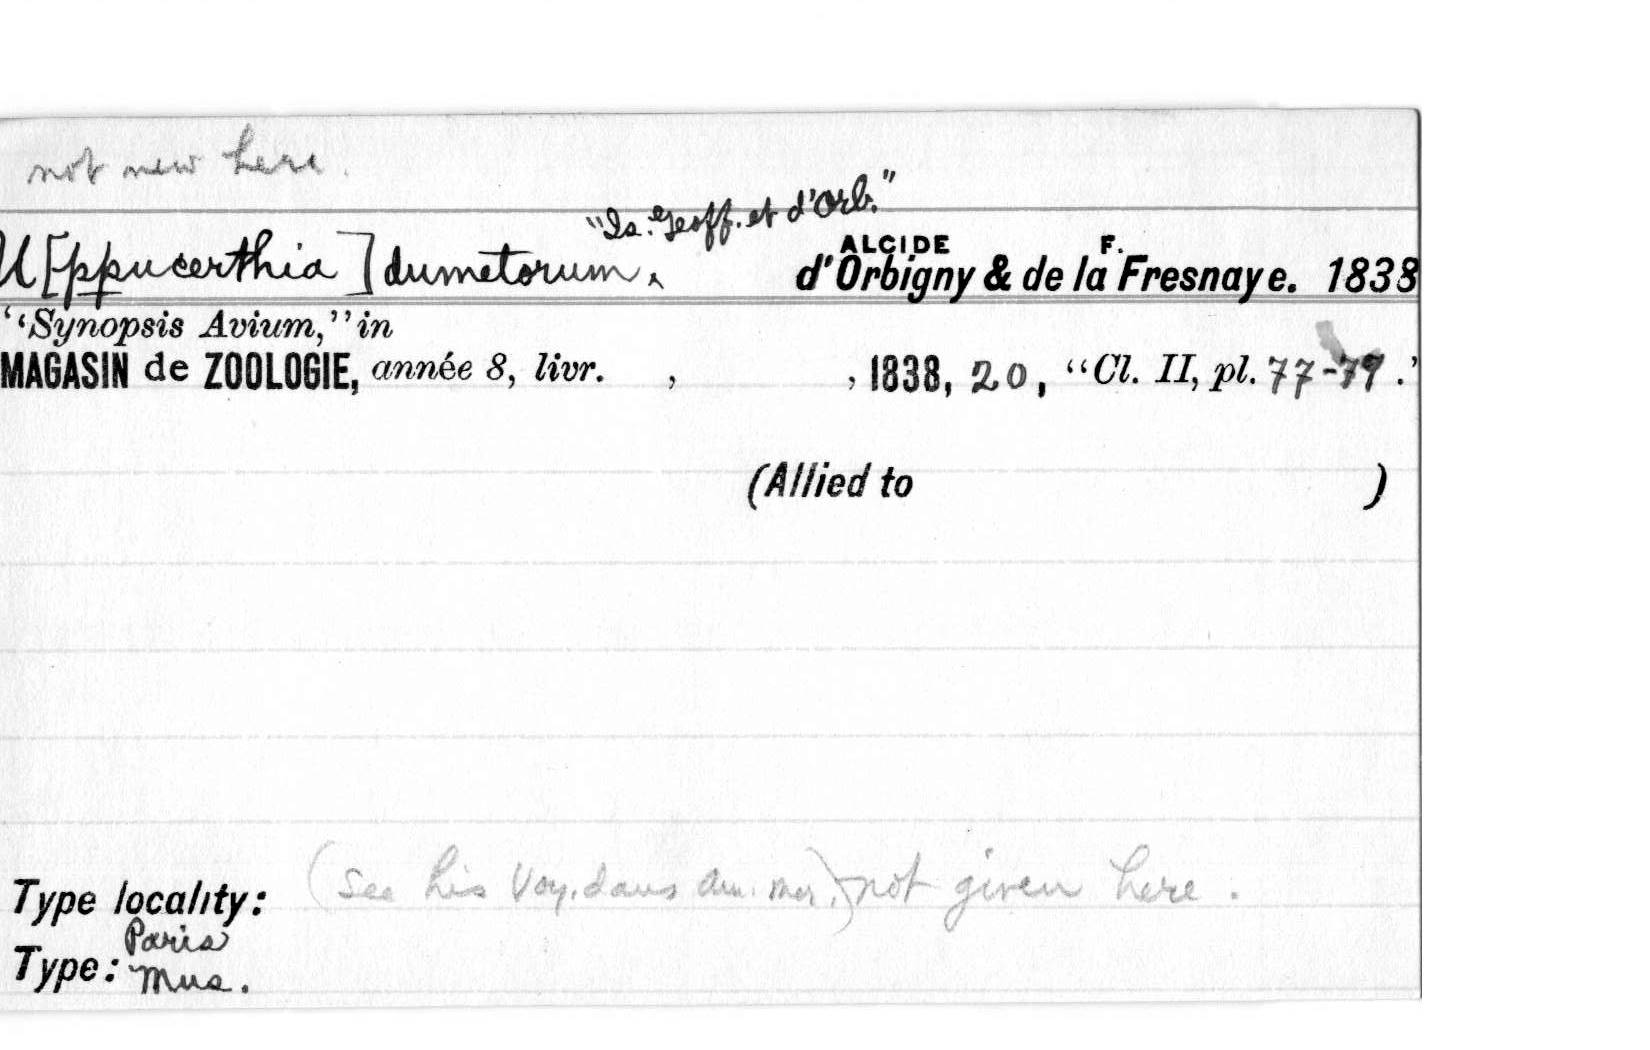 not new here.
"Is. Geoff. et d'Orb."
U[ppucerthia] dumetorum,
ALCIDE F.
d'Orbigny & de la Fresnaye. 1838
"Synopsis Avium," in
MAGASIN de ZOOLOGIE, année 8, livr. , , 1838, 20, "Cl. II, pl. 77-79.'
(Allied to )
Type locality: (see his Voy. dans Am. Mer.) not given here.
Paris
Type: Mus.